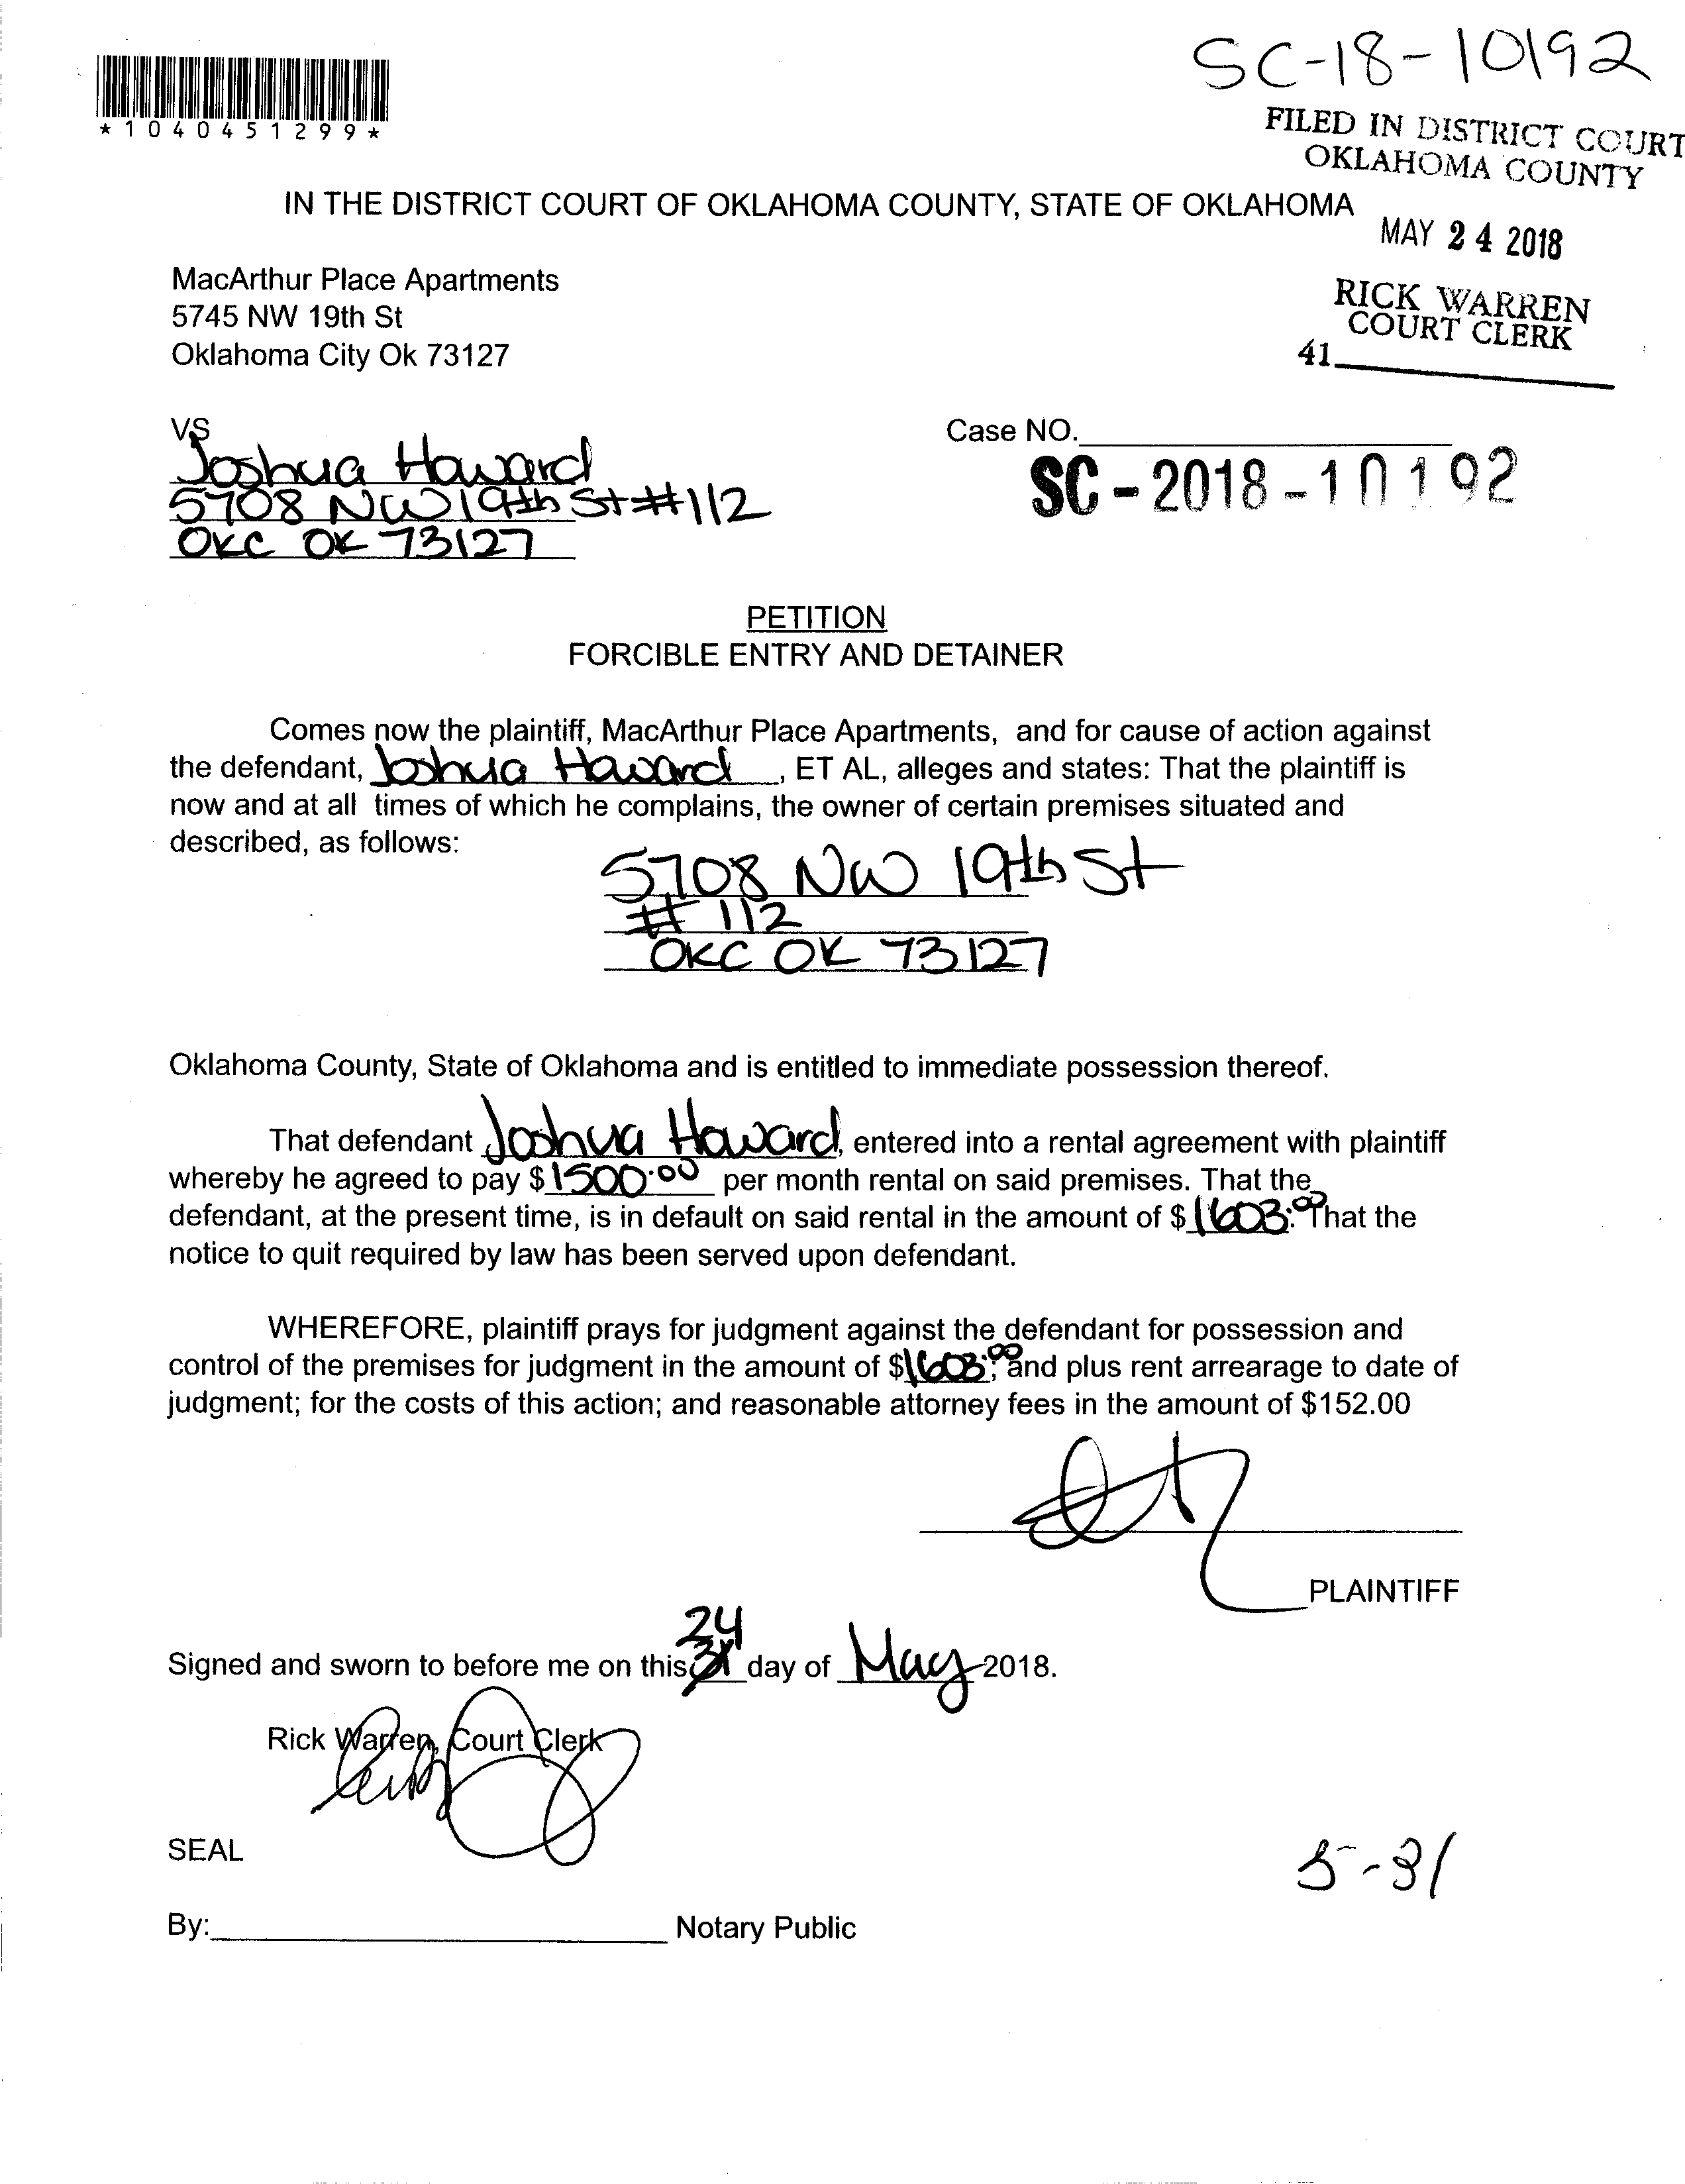 SC-18-10192
*1040451299*
FILED IN DISTRICT COURT
OKLAHOMA COUNTY
IN THE DISTRICT COURT OF OKLAHOMA COUNTY, STATE OF OKLAHOMA
MAY 24 2018
MacArthur Place Apartments
5745 NW 19th St
Oklahoma City Ok 73127
RICK WARREN
COURT CLERK
41
VS
Joshua Howard
5708 NW 19th St #112
OKC OK 73127
Case NO.
SC-2018-10192
PETITION
FORCIBLE ENTRY AND DETAINER
Comes now the plaintiff, MacArthur Place Apartments, and for cause of action against
the defendant, Joshua Howard, ET AL, alleges and states: That the plaintiff is
now and at all times of which he complains, the owner of certain premises situated and
described, as follows:
5708 NW 19th St
# 112
OKC OK 73127
Oklahoma County, State of Oklahoma and is entitled to immediate possession thereof.
That defendant Joshua Howard, entered into a rental agreement with plaintiff
whereby he agreed to pay $1500.00 per month rental on said premises. That the
defendant, at the present time, is in default on said rental in the amount of $1603.00 That the
notice to quit required by law has been served upon defendant.
WHEREFORE, plaintiff prays for judgment against the defendant for possession and
control of the premises for judgment in the amount of $1603.00, and plus rent arrearage to date of
judgment; for the costs of this action; and reasonable attorney fees in the amount of $152.00
PLAINTIFF
Signed and sworn to before me on this 24 day of May 2018.
Rick Warren, Court Clerk
SEAL
5-31
By: Notary Public